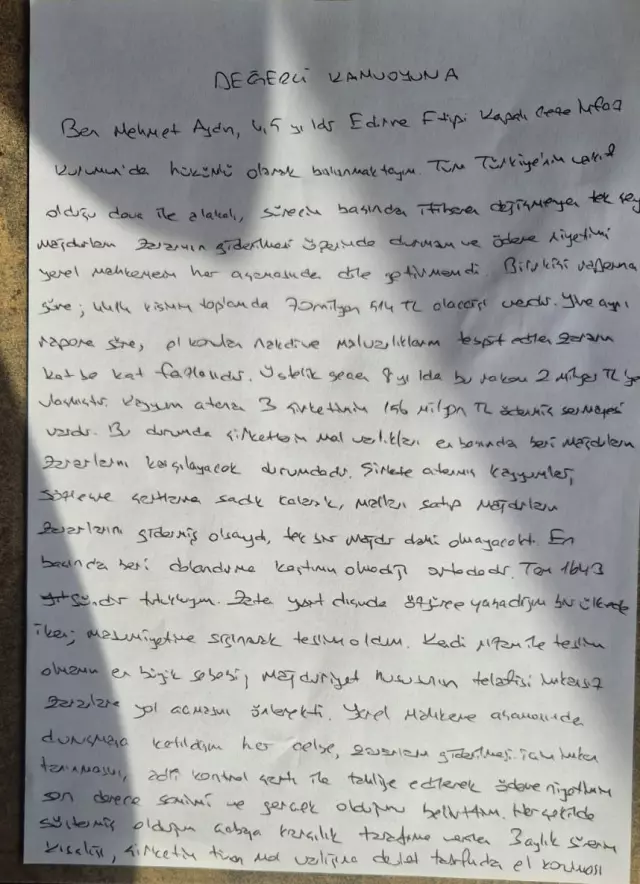 DEĞERLİ KAMUOYUNA
Ben Mehmet Aydın, 4,5 yıldır Edirne F tipi Kapalı Ceza İnfaz
Kurumun'da hükümlü olarak bulunmaktayım. Tüm Türkiye'nin vakıf
olduğu dava ile alakalı, sürecin başından itibaren değişmeyen tek şey
mağdurların zararının giderilmesi üzerinde durmam ve ödeme niyetimi
yerel mahkemenin her aşamasında dile getirmemdi. Bilirkişi raporuna
göre; 44lük kısmın toplamda 70 milyon 514 TL alacağı vardır. Yine aynı
rapora göre, el konulan nakdi ve malvarlıklarım tespit edilen zararın
kat be kat fazlasıdır. Üstelik geçen 8 yılda bu rakam 2 milyar TL'ye
ulaşmıştır. Kayyum atanan 3 şirketimin 156 milyon TL ödenmiş sermayesi
vardı. Bu durumda şirketlerin mal varlıkları en başından beri mağdurların
zararlarını karşılayacak durumdadır. Şirkete atanmış kayyumlar,
sözleşme şartlarına sadık kalarak, malları satıp mağdurların
zararlarını gidermiş olsaydı, tek bir mağdur dahi olmayacaktı. En
başından beri dolandırma kastımın olmadığı ortadadır. Tam 1643
gündür tutukluyum. Zaten yurt dışında özgürce yaşadığım bir ülkede
iken; masumiyetime sığınarak teslim oldum. Kendi rızam ile teslim
olmamın en büyük sebebi, mağduriyet hususunun telafisi imkansız
zararlara yol açmasını önlemekti. Yerel Mahkeme aşamasında
duruşmaya katıldığım her celse, zararların giderilmesi için imkan
tanınmasını, adli kontrol şartı ile tahliye edilerek ödeme niyetimin
son derece samimi ve gerçek olduğunu belirttim. Her şekilde
göstermiş olduğum çabaya karşılık tarafıma verilen 3 aylık sürenin
kısalığı, şirketin tüm mal varlığına devlet tarafında el konması